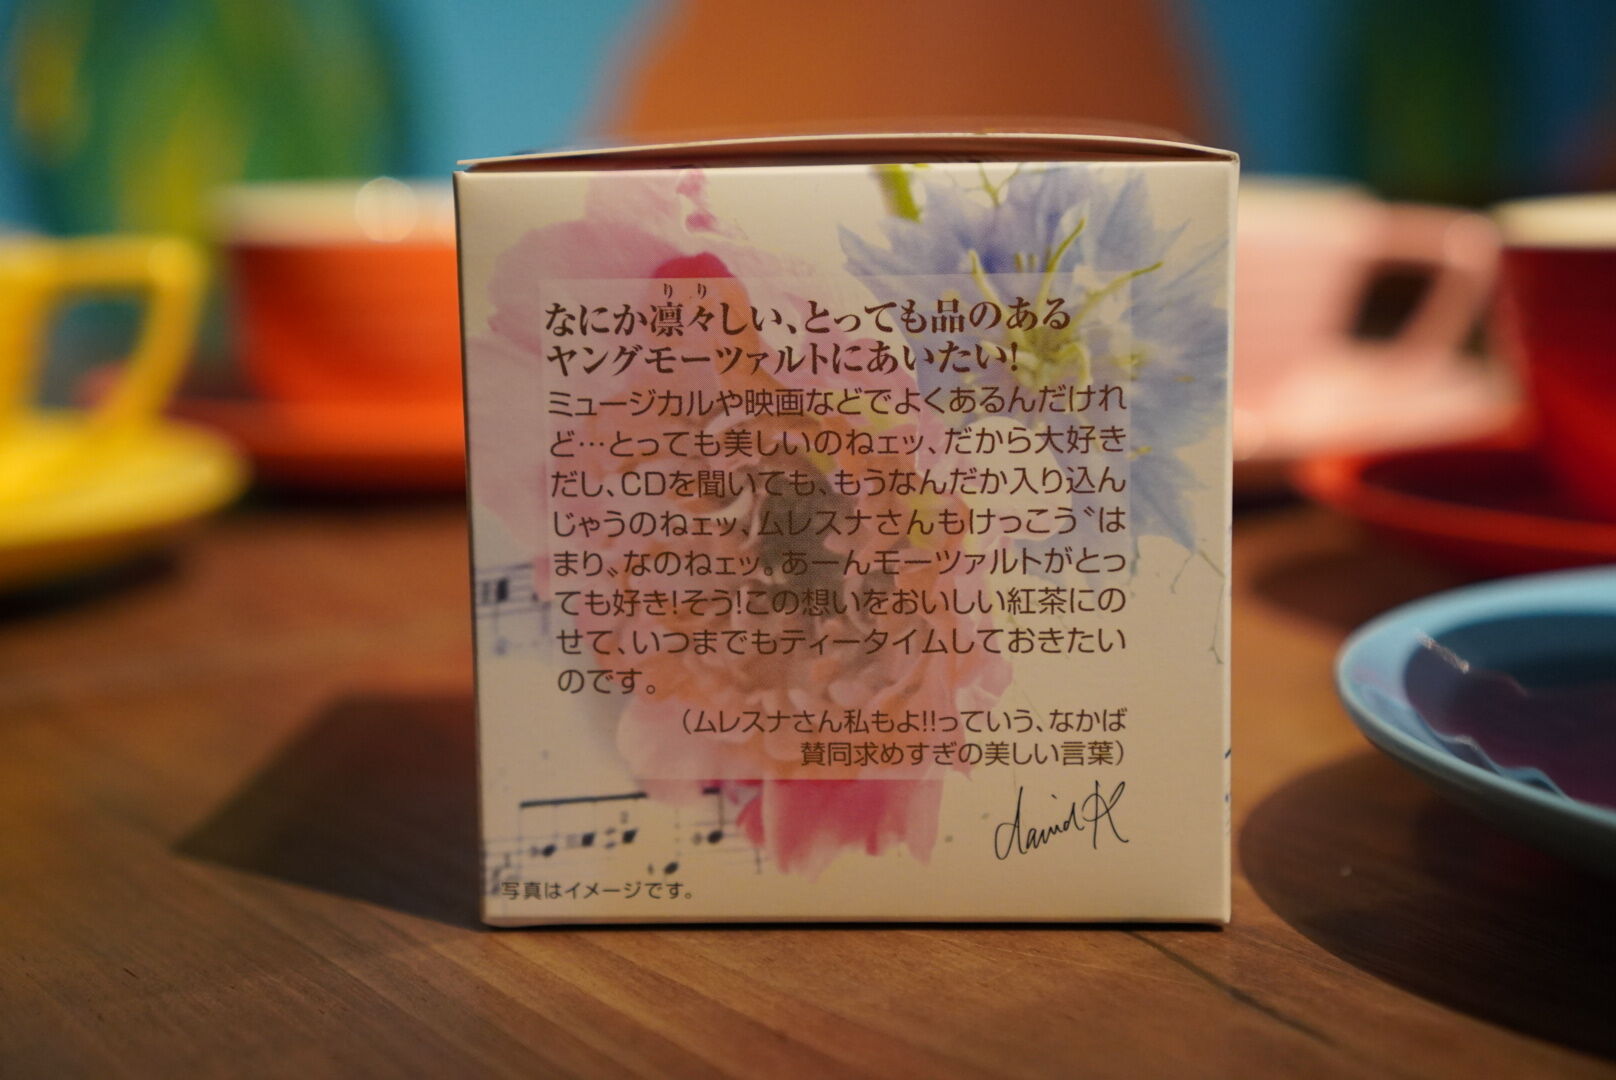 なにか凛々しい、とっても品のある
りり
ヤングモーツァルトにあいたい!
ミュージカルや映画などでよくあるんだけれ
ど…とっても美しいのねェッ、だから大好き
だし、CDを聞いても、もうなんだか入り込ん
じゃうのねェッ、ムレスナさんもけっこう〝は
まり〟なのねェッ。あーんモーツァルトがとっ
ても好き!そう!この想いをおいしい紅茶にの
せて、いつまでもティータイムしておきたい
のです。
(ムレスナさん私もよ!!っていう、なかば
賛同求めすぎの美しい言葉)
david K
写真はイメージです。